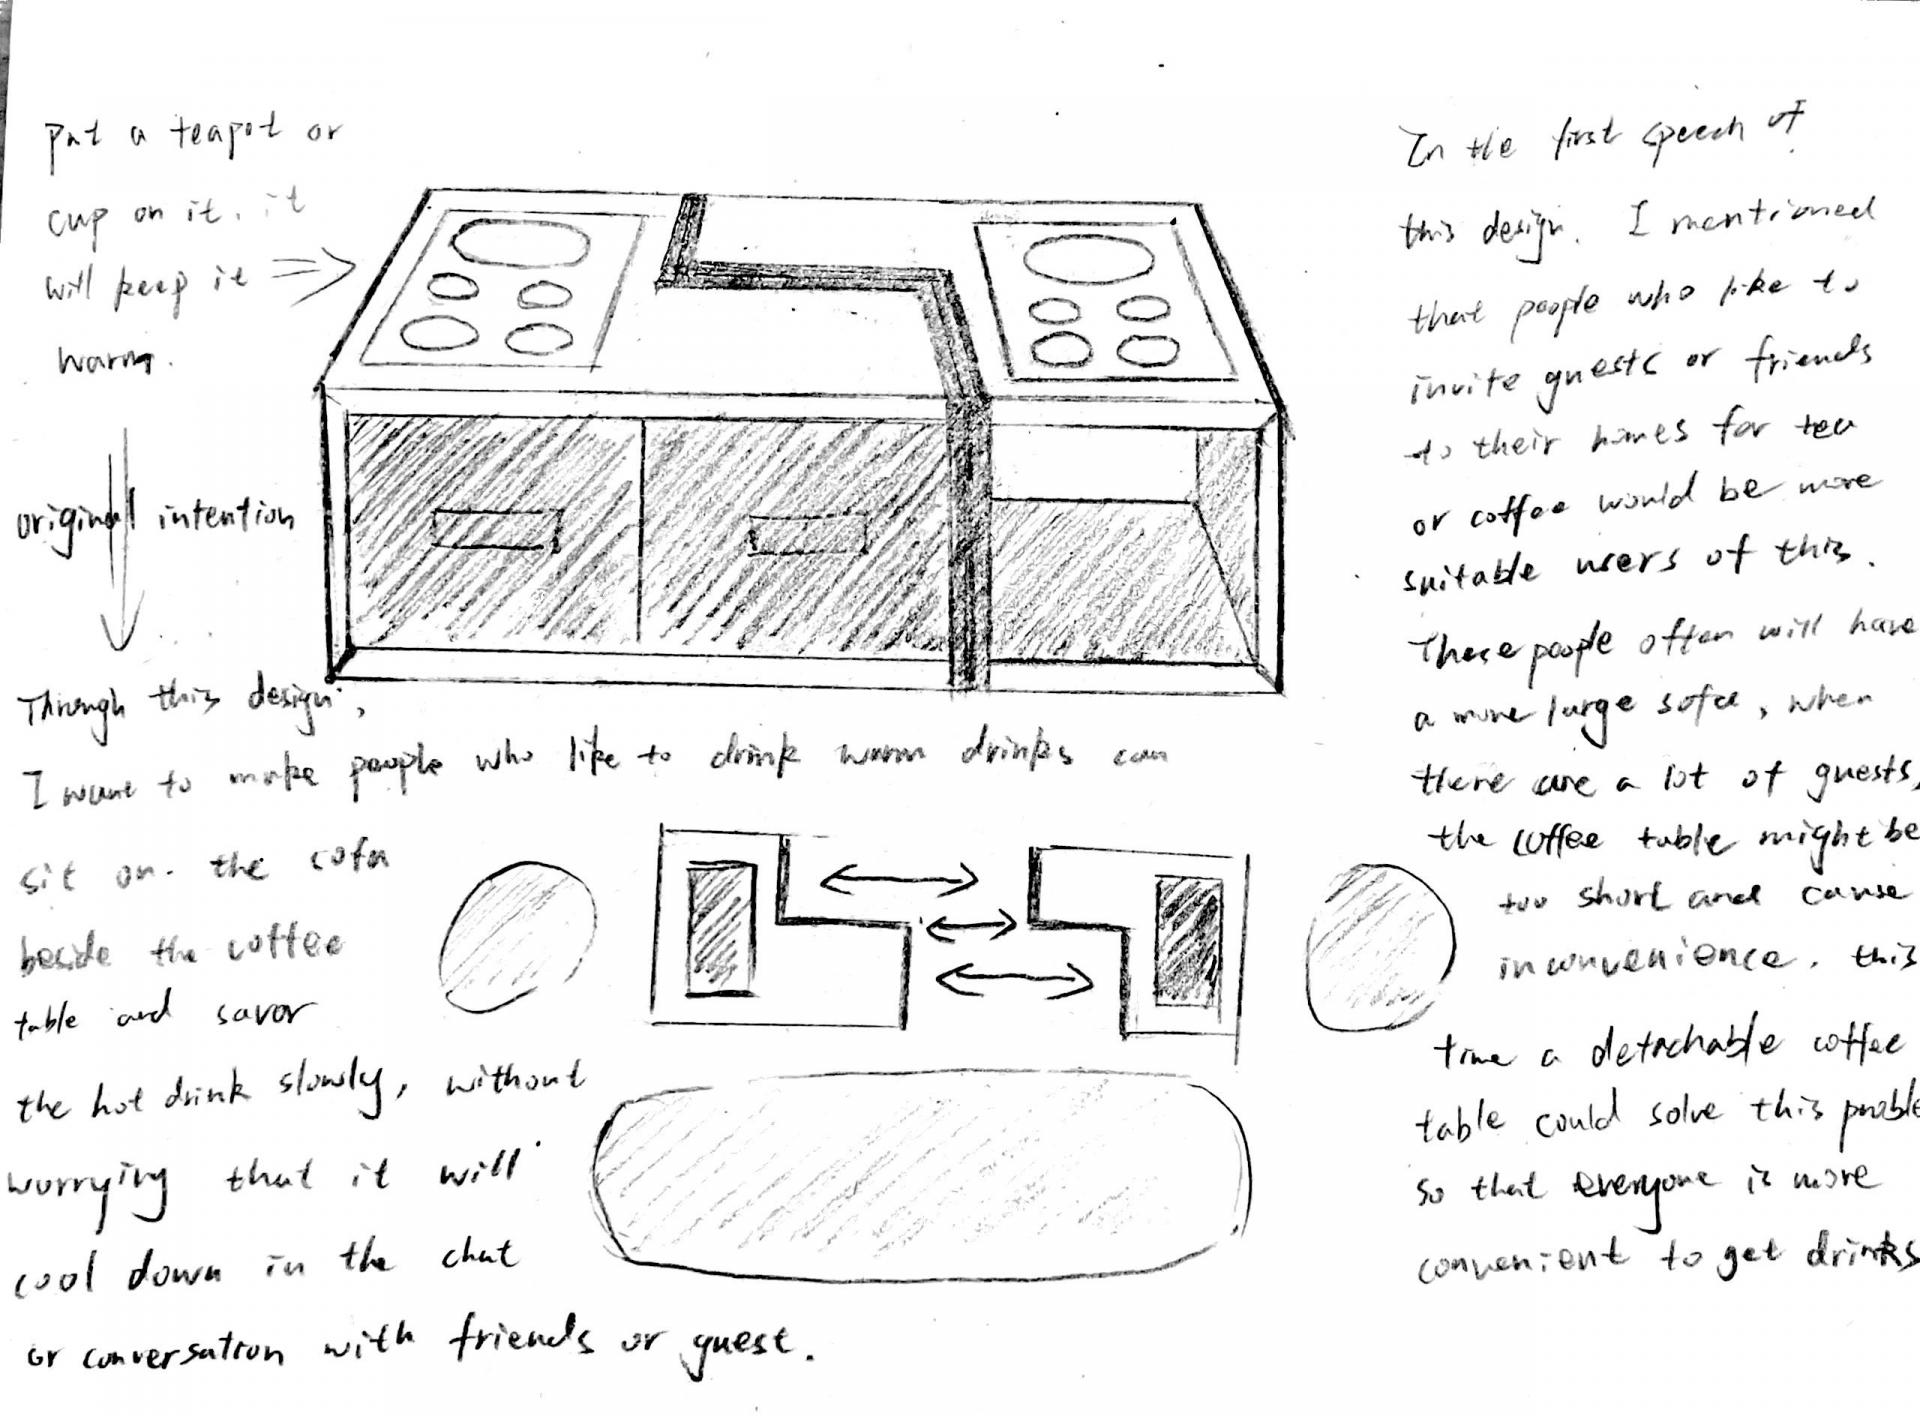 put a teapot or
cup on it. it
will keep it
warm.
original intention
Through this design,
I want to make people who like to drink warm drinks can
sit on the sofa
beside the coffee
table and savor
the hot drink slowly, without
worrying that it will
cool down in the chat
or conversation with friends or guest.
In the first speech of
this design. I mentioned
that people who like to
invite guests or friends
to their homes for tea
or coffee would be more
suitable users of this.
These people often will have
a more large sofa, when
there are a lot of guests,
the coffee table might be
too short and cause
inconvenience. this
time a detachable coffee
table could solve this proble
so that everyone is more
convenient to get drinks